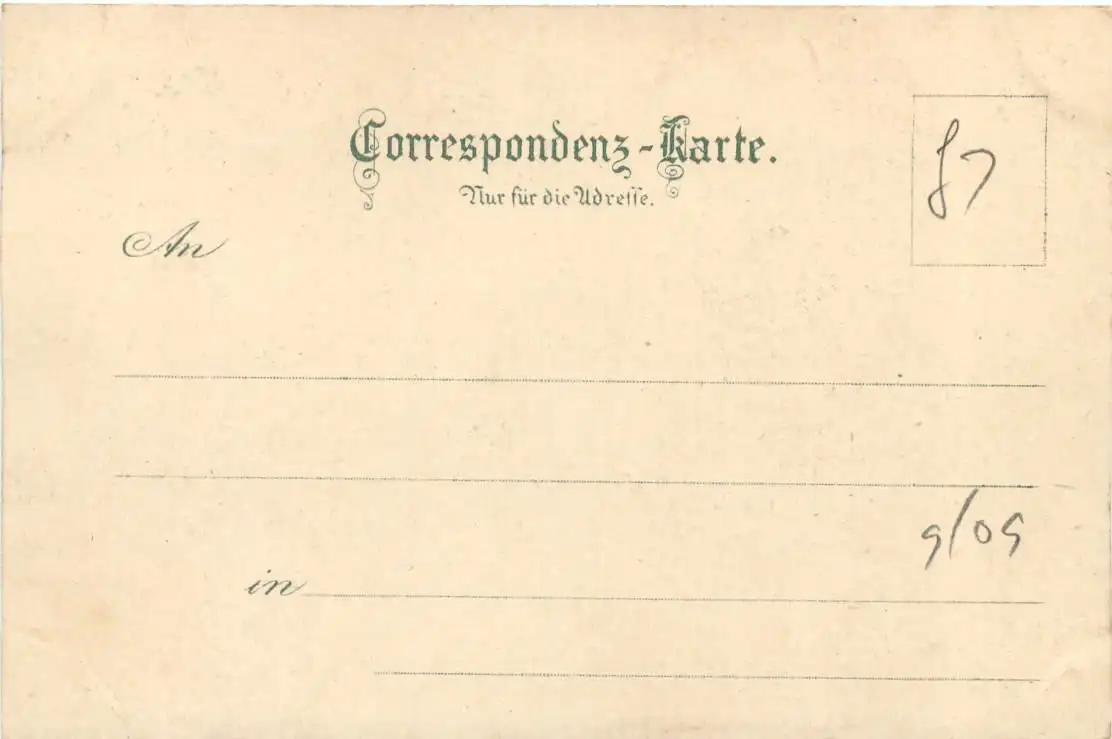 Correspondenz-Karte.
Nur für die Adresse.
An
9/09
in